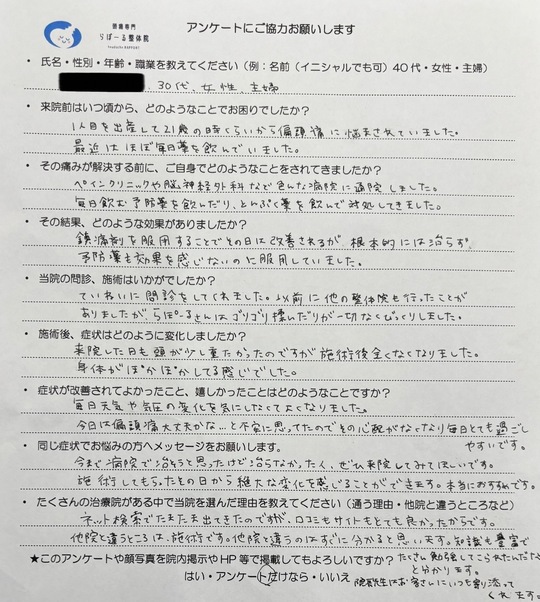 頭痛専門
らぽーる整体院
アンケートにご協力お願いします
・氏名・性別・年齢・職業を教えてください(例:名前(イニシャルでも可)40代・女性・主婦)
30代、女性、主婦
・来院前はいつ頃から、どのようなことでお困りでしたか?
1人目を出産して21歳の時くらいから偏頭痛に悩まされていました。
最近はほぼ毎日薬を飲んでいました。
・その痛みが解決する前に、ご自身でどのようなことをされてきましたか?
ペインクリニックや脳神経外科など色んな病院に通院しました。
毎日飲む予防薬を飲んだり、とんぷく薬を飲んで対処してきました。
・その結果、どのような効果がありましたか?
鎮痛剤を服用することでその日は改善されるが、根本的には治らず
予防薬も効果を感じないのに服用していました。
・当院の問診、施術はいかがでしたか?
ていねいに問診をしてくれました。以前に他の整体院も行ったことが
ありましたがらぽーるさんはゴリゴリ揉んだりが一切なくびっくりしました。
・施術後、症状はどのように変化しましたか?
来院した日も頭が少し重たかったのですが施術後全くなくなりました。
身体がぽかぽかしてる感じでした。
・症状が改善されてよかったこと、嬉しかったことはどのようなことですか?
毎日天気や気圧の変化を気にしなくてよくなりました。
今日は偏頭痛大丈夫かな…と不安に思ってたのでその心配がなくなり毎日とても過ごし
やすいです。
・同じ症状でお悩みの方へメッセージをお願いします。
今まで病院で治そうと思ったけど治らなかった人、ぜひ来院してみてほしいです。
施術してもらったその日から絶大な変化を感じることができます。本当におすすめです。
・たくさんの治療院がある中で当院を選んだ理由を教えてください(通う理由・他院と違うところなど)
ネット検索でたまたま出てきたのですが、口コミもサイトもとても良かったからです。
他院と違うところは、施術です。他院と違うのはすぐに分かると思います。知識も豊富で
たくさん勉強してこられたんだな
と分かります。
院長先生はお客さんにいつも寄り添って
くれます。
★このアンケートや顔写真を院内掲示やHP等で掲載してもよろしいですか?
はい・アンケートだけなら・いいえ